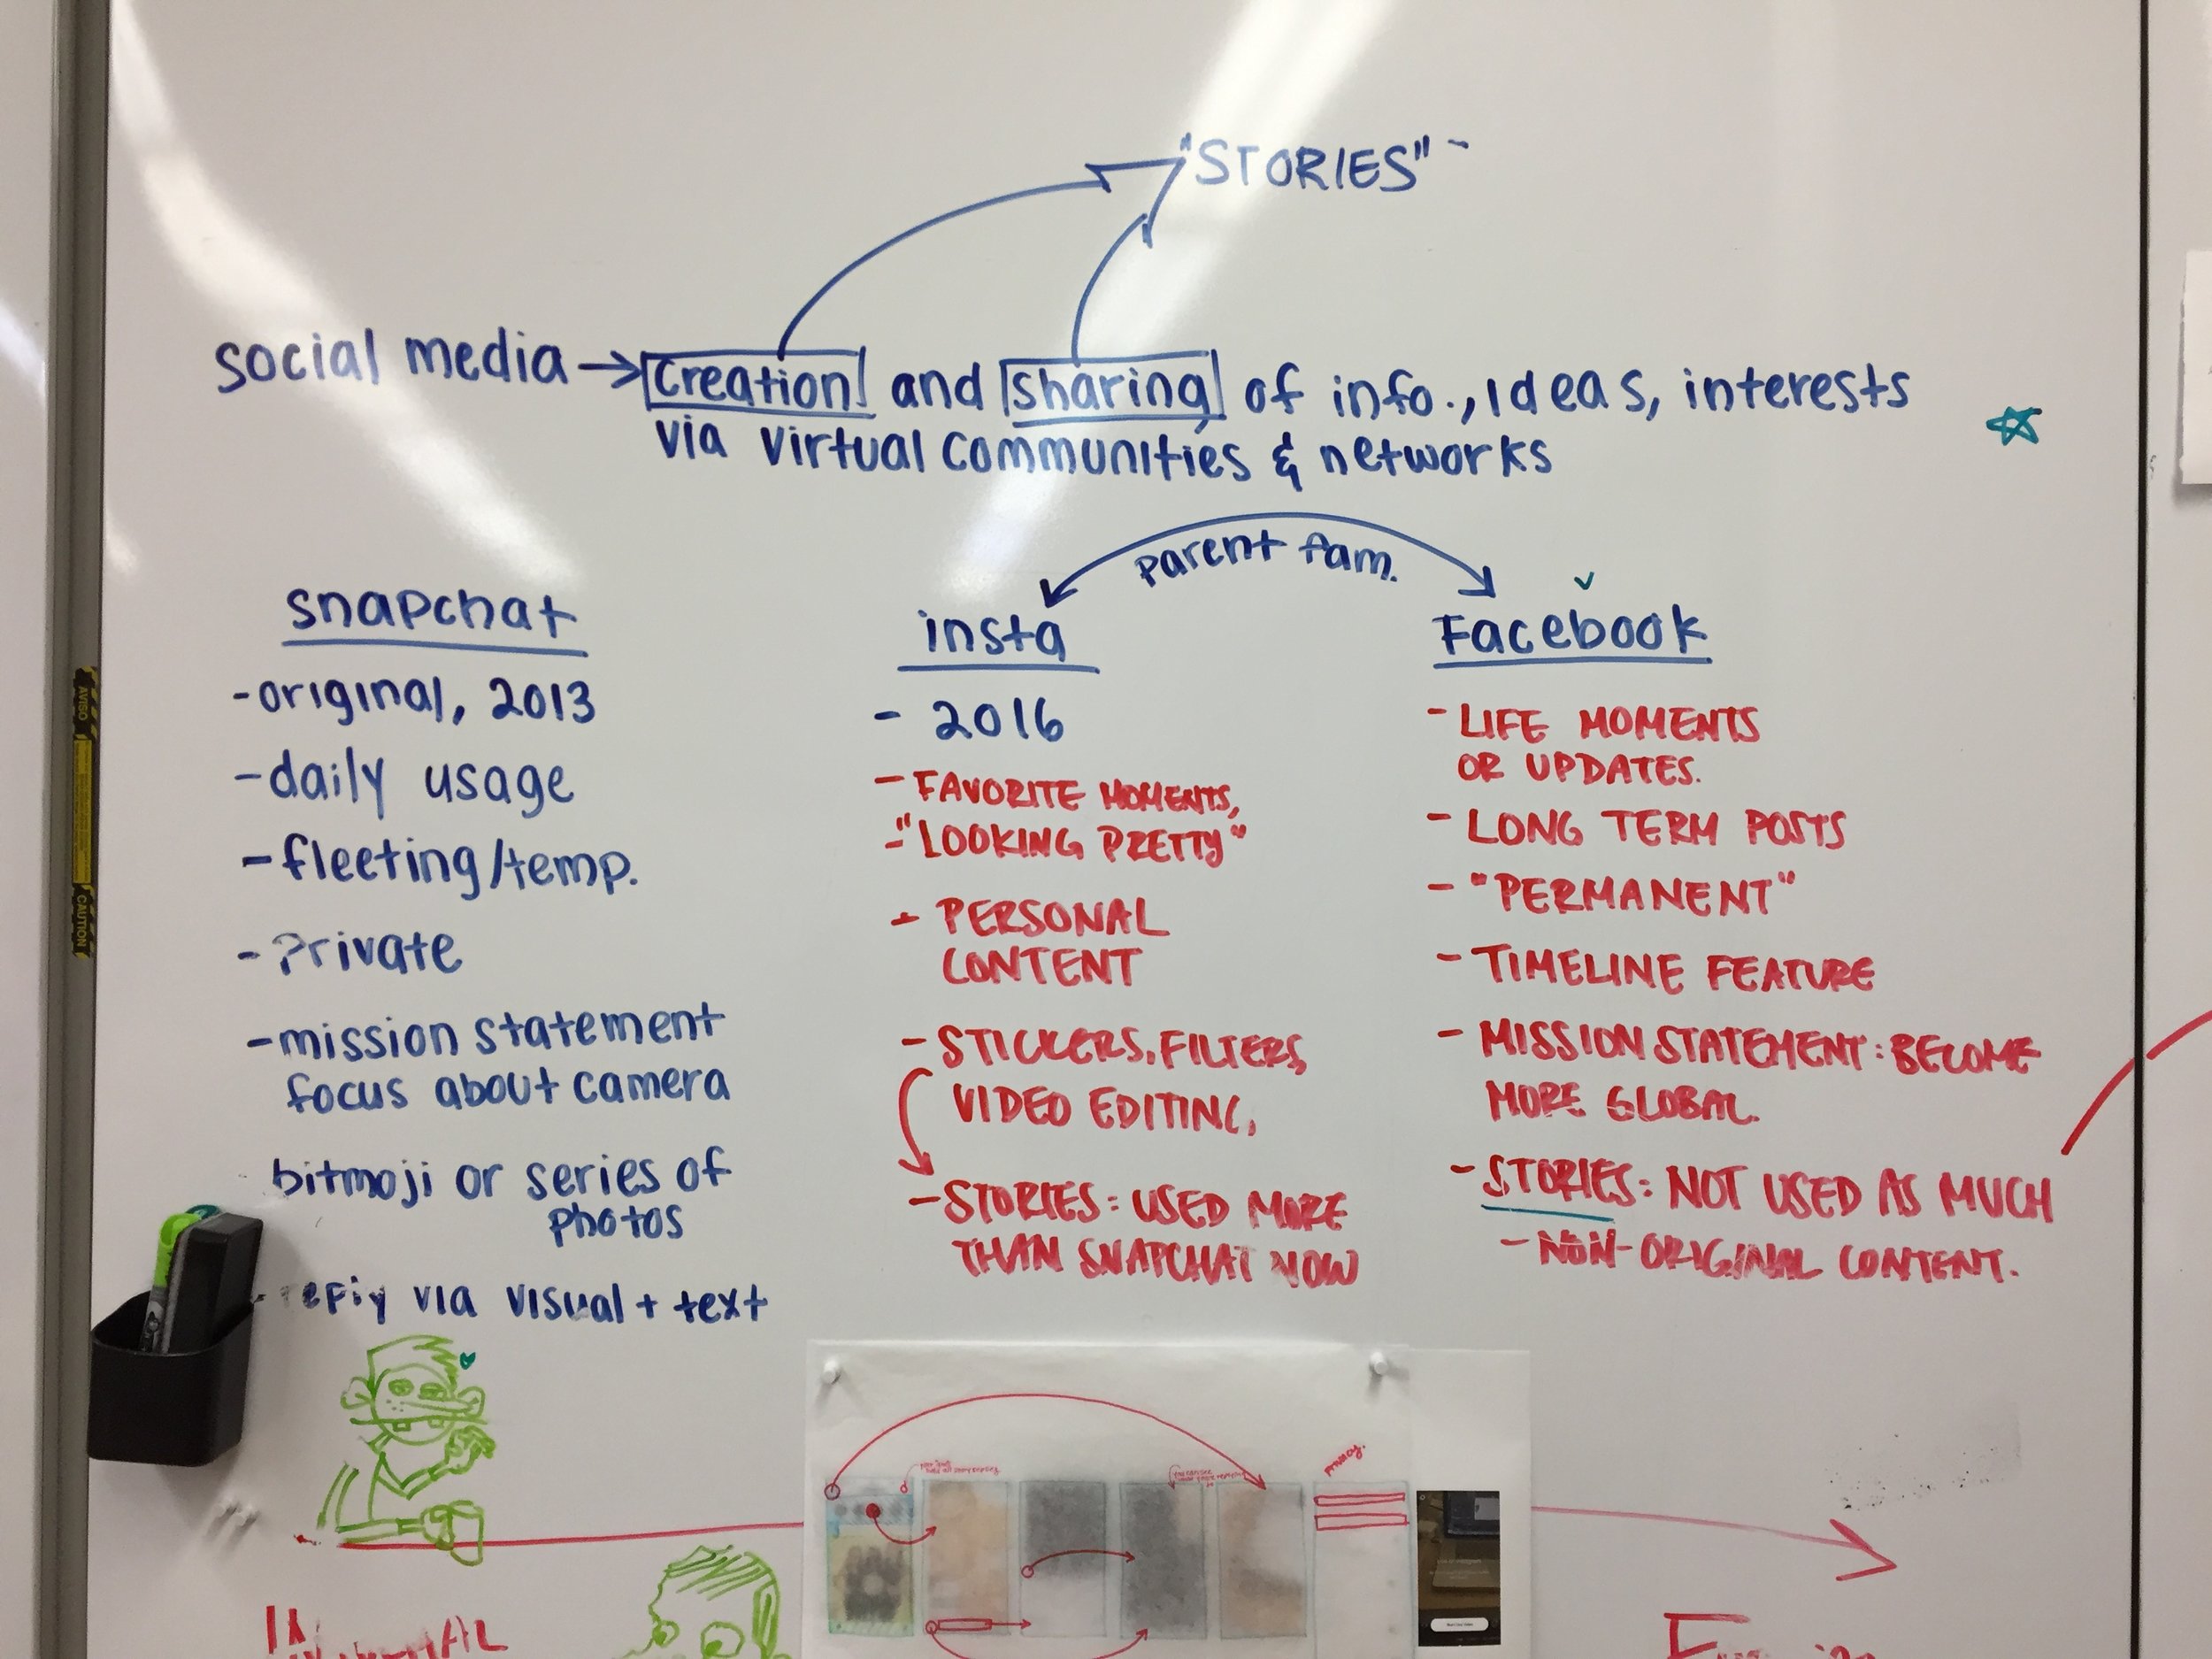 "STORIES" -
social media → creation and sharing of info., ideas, interests
via virtual communities & networks
parent fam.
snapchat
- original, 2013
- daily usage
- fleeting/temp.
- Private
- mission statement
focus about camera
bitmoji or series of
photos
via visual + text
insta
- 2016
- FAVORITE MOMENTS,
- "LOOKING PRETTY"
- PERSONAL
CONTENT
- STICKERS, FILTERS,
VIDEO EDITING,
- STORIES: USED MORE
THAN SNAPCHAT NOW
Facebook
- LIFE MOMENTS
OR UPDATES.
- LONG TERM POSTS
- "PERMANENT"
- TIMELINE FEATURE
- MISSION STATEMENT: BECOME
MORE GLOBAL.
- STORIES: NOT USED AS MUCH
- NON-ORIGINAL CONTENT.
AVISO
CAUTION
Privacy.